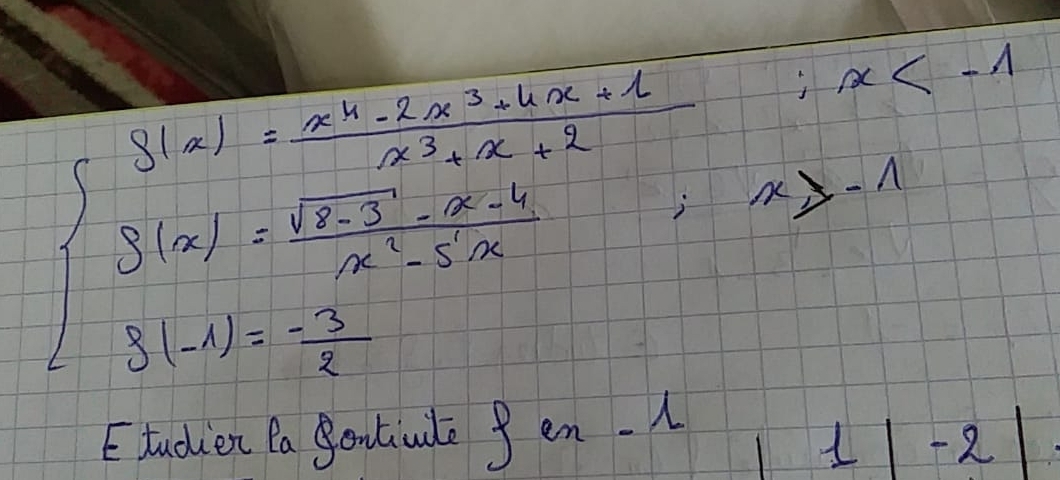 f(x) = (x⁴ - 2x³ + 4x + 1)/(x³ + x + 2) ; x < -1
f(x) = (√(8-3) - x - 4)/(x² - 5x) ; x > -1
f(-1) = -3/2
Etudier la fontinuité f en -1
| 1 | -2 |